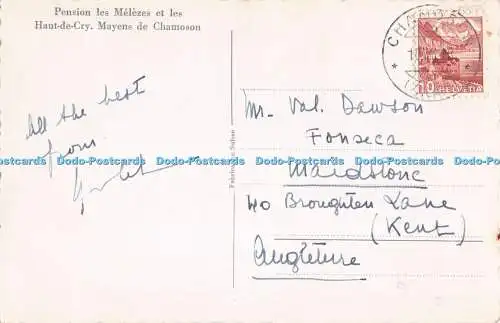 Pension les Mélèzes et les
Haut-de-Cry. Mayens de Chamoson
CHAMOSON
10
HELVETIA
All the best
from
Mr. Val. Dawson
Fonseca
Maidstone
40 Broughton Lane
(Kent)
Angleterre
Dodo-Postcards Dodo-Postcards Dodo-Postcards Dodo-Postcards Dodo-Postcards